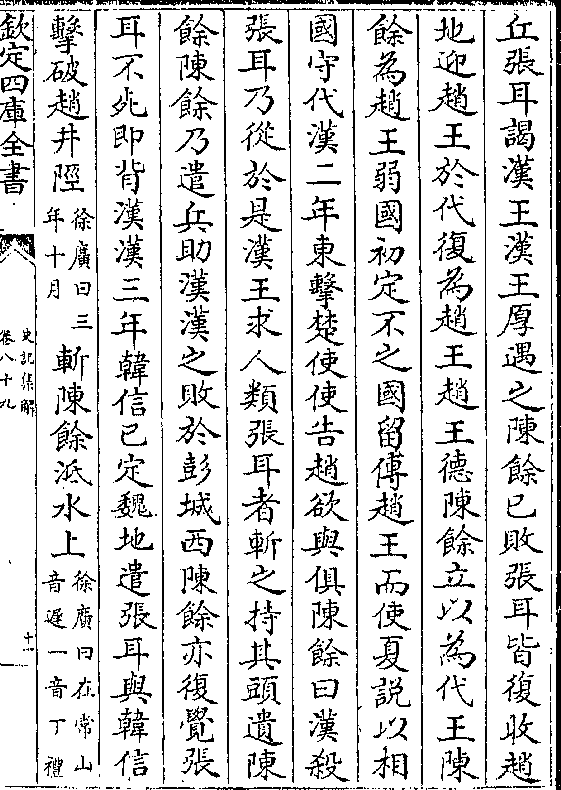 丘張耳謁漢王漢王厚遇之陳餘已敗張耳皆復收趙
地迎趙王於代復為趙王趙王德陳餘立以為代王陳
餘為趙王弱國初定不之國留傅趙王而使夏說以相
國守代漢二年東擊楚使使告趙欲與俱陳餘曰漢殺
張耳乃從於是漢王求人類張耳者斬之持其頭遺陳
餘陳餘乃遣兵助漢漢之敗於彭城西陳餘亦復覺張
耳不死即背漢漢三年韓信已定魏地遣張耳與韓信
擊破趙井陘徐廣曰三年十月斬陳餘泜水上徐廣曰在常山音遲一音丁禮
欽定四庫全書
史記集解
卷八十九
十一